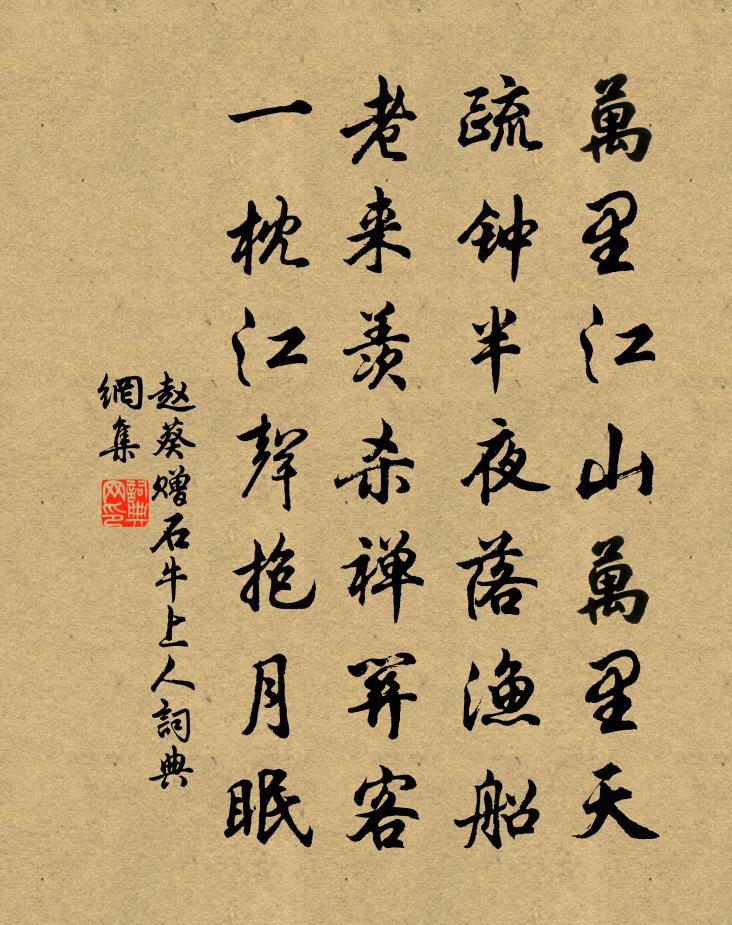 萬里江山萬里天
疏钟半夜落渔船
老来羡杀禅关客
一枕江聲抱月眠
赵葵赠石牛上人詞典
網集
詞典
网印